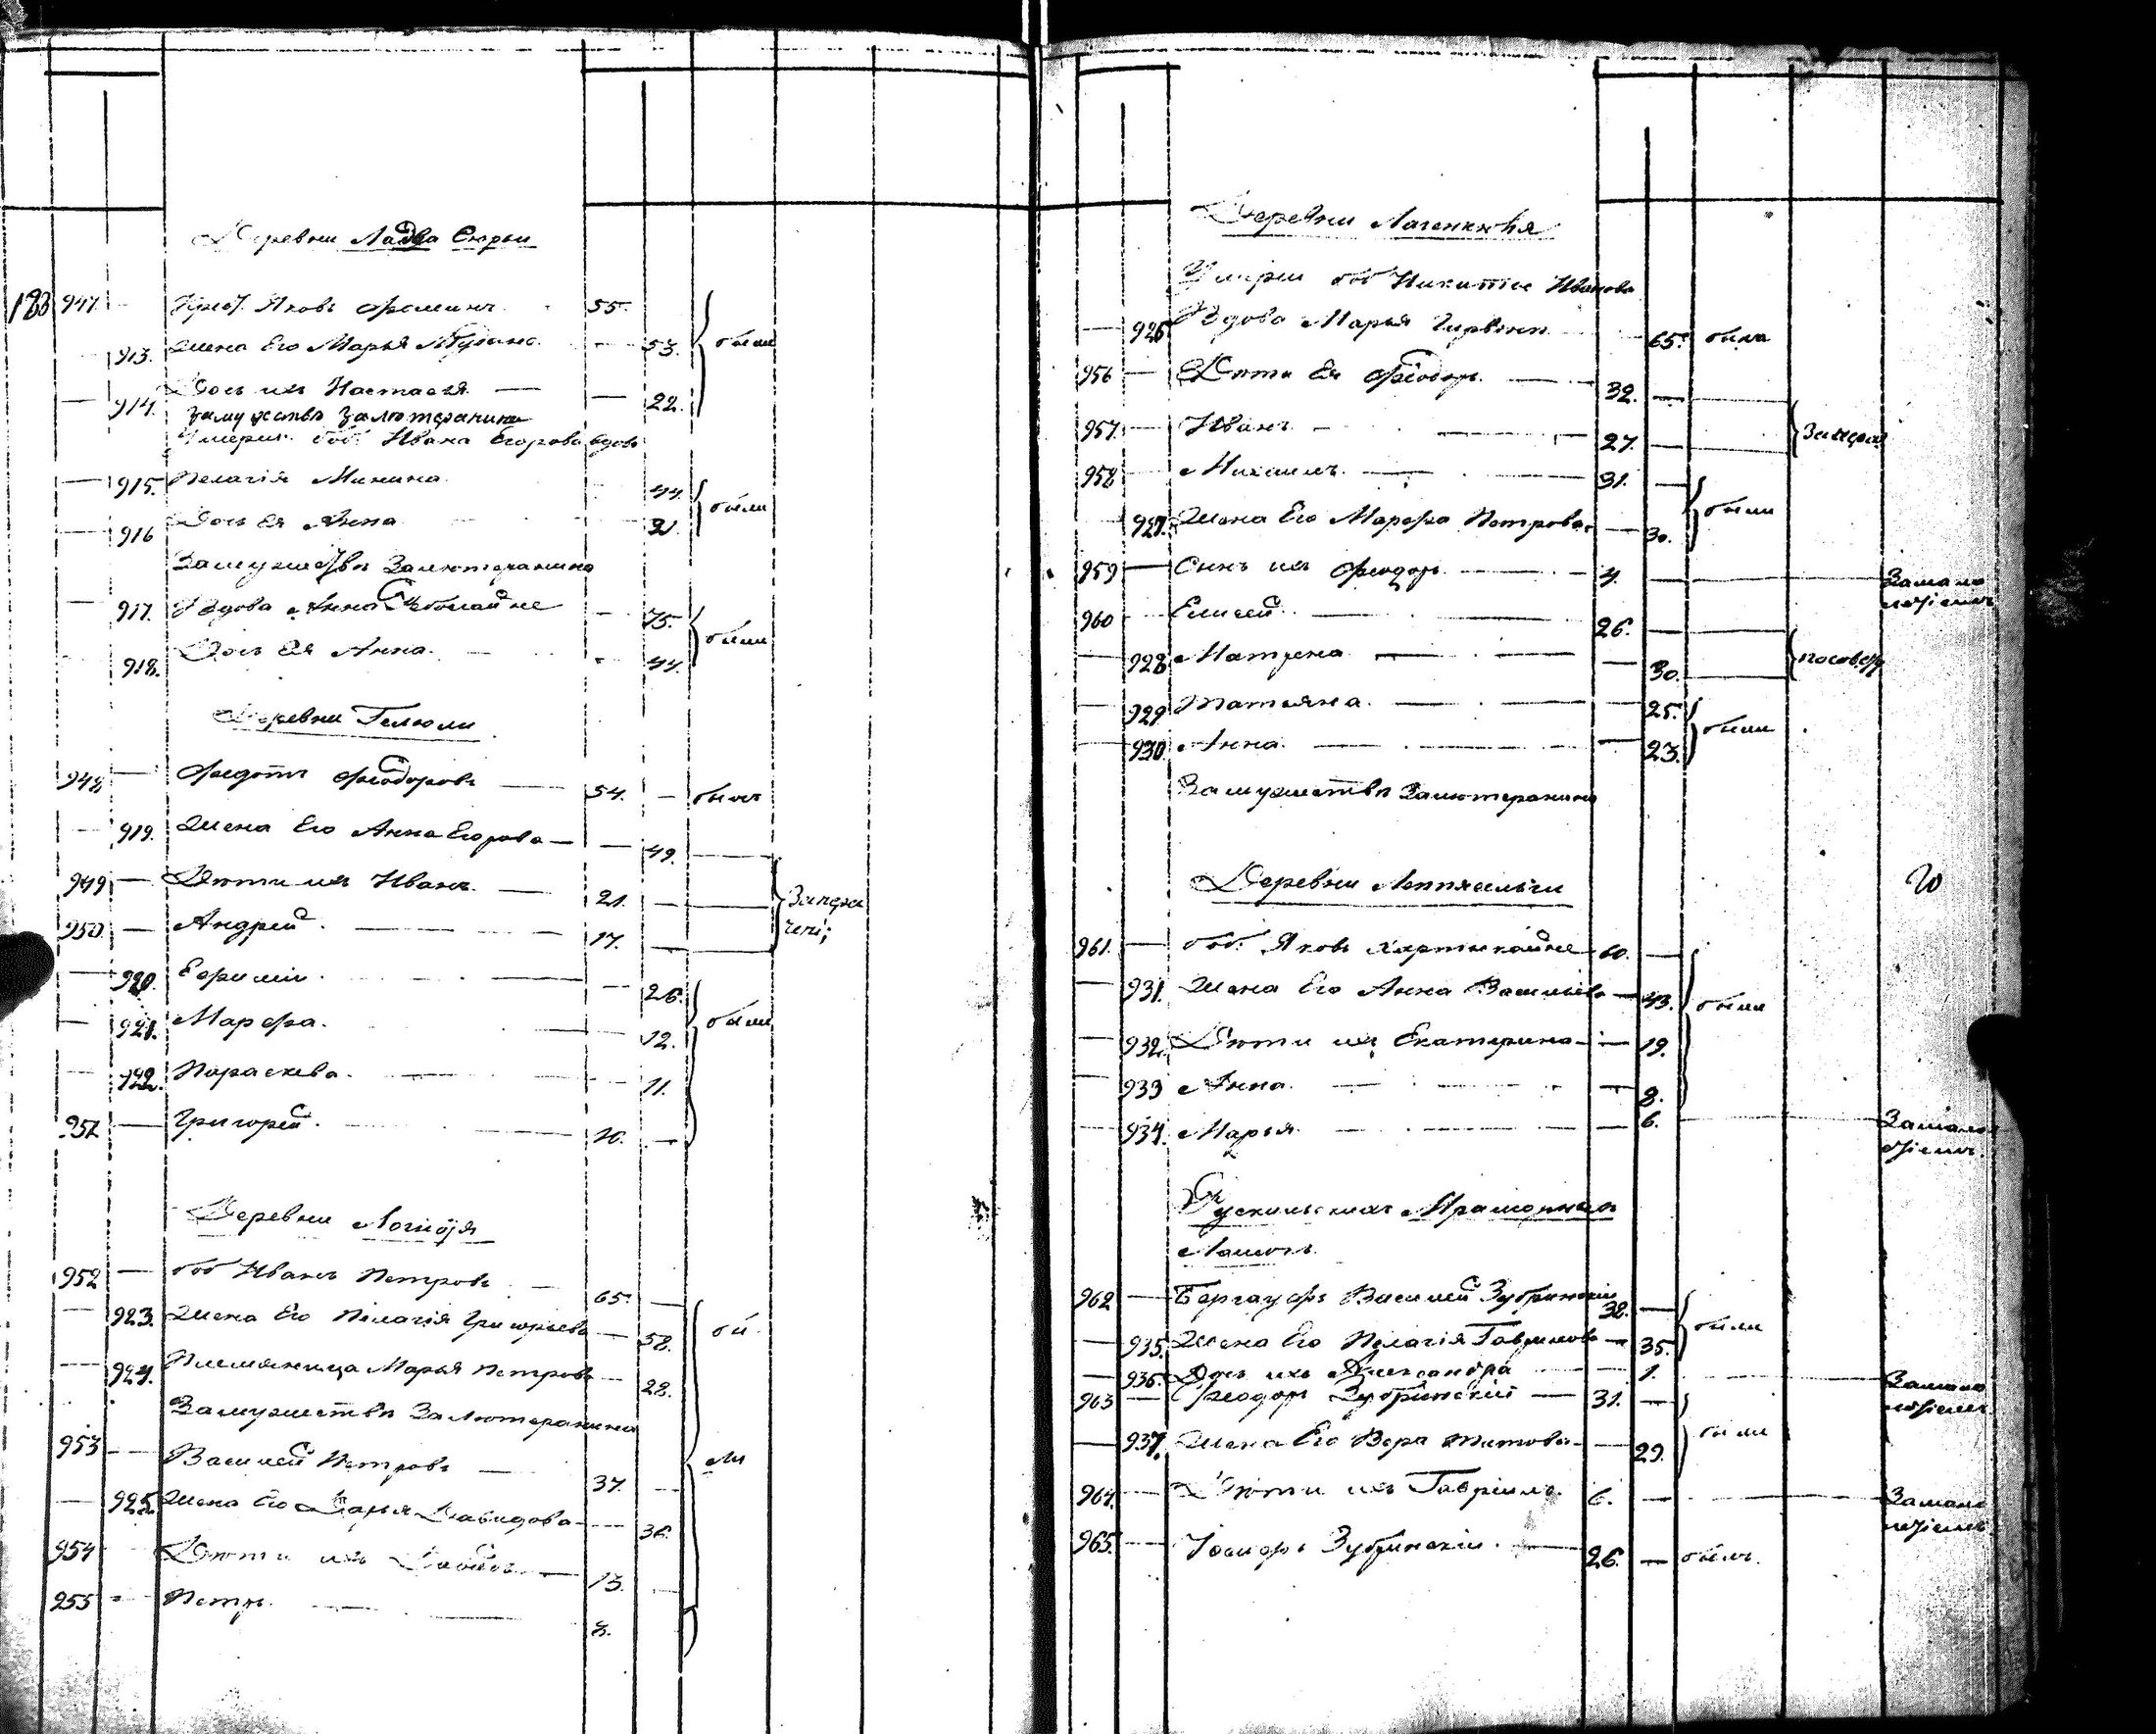 Деревни Ладва Сюрьи
188 947. Крест. Яковъ Фоминъ 55.
913. Жена Его Марья 53. были
914. Дочь ихъ Настасья 22.
Замужествѣ За лютеранин
Умерш. боб. Ивана Егорова вдова
915. Пелагія Минина 44. были
916 Дочь Ея Анна
Замужествѣ За лютеранина
917. Вдова Анна 75. были
918. Дочь Ея Анна 44.
Деревни Гелюли
948 Федотъ Феодоровъ 54. былъ
919. Жена Его Анна Егорова 49.
949 Дѣти ихъ Иванъ 21.
950 Андрей 17.
920. Ефимія 26.
921. Марфа 12. были
922. Параскева 11.
951 Григорей 10.
Деревни
952 боб Иванъ Петровъ 65.
923. Жена Его Пелагія Григорьева 58. бы
924. Племянница Марья Петрова 28.
Замужествѣ За Лютеранина
953 Василей Петровъ 37. ли
925. Жена Его Дарья Давидова 36.
954 Дѣти ихъ Давидъ 13.
955 Петръ 8.
Деревни
Умерш боб Никиты Иванова
926 Вдова Марья 65. была
956 Дѣти Ея Феодоръ 32.
957. Иванъ 27.
958 Михаилъ 31.
927. Жена Его Марфа Петрова 30. были
959 Сынъ ихъ Феодоръ 4. Замало
лѣтіемъ
960 Елисей 26.
928 Матрена 30.
929 Татьяна 25.
930. Анна 23. были
Замужествѣ За лютеранина
Деревни
20
961. боб. Яковъ 60.
931. Жена Его Анна Васильева 43. были
932. Дѣти ихъ Екатерина 19.
933 Анна 8.
934. Марья 6. Замало
лѣтіемъ
Рускильскихъ Мраморныхъ
Ломокъ
962 Бергауеръ Василей Зубринскій 38.
935. Жена Его Пелагія Гаврилова 35. были
936. Дочь ихъ Александра 1. Замало
лѣтіемъ
963 Феодоръ Зубринскій 31.
937. Жена Его Вера Титова 29. были
964. Дѣти ихъ Гавріилъ 6. Замало
лѣтіемъ
965. Іосифъ Зубринскій 26. былъ